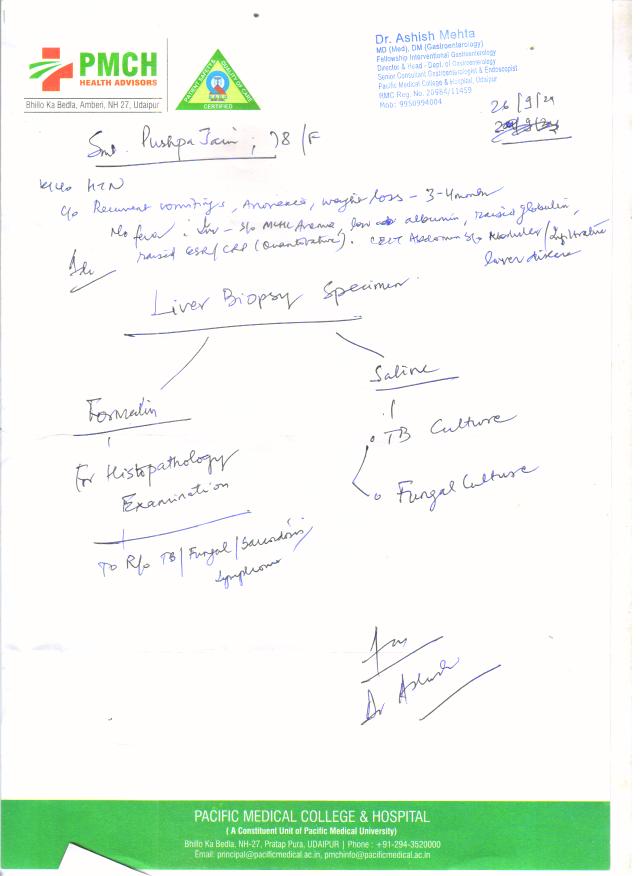 PMCH
HEALTH ADVISORS
Bhillo Ka Bedla, Amberi, NH 27, Udaipur
PATIENT SAFETY & QUALITY OF CARE
CERTIFIED
Dr. Ashish Mehta
MD (Med), DM (Gastroenterology)
Fellowship Interventional Gastroenterology
Director & Head - Dept. of Gastroenterology
Senior Consultant Gastroenterologist & Endoscopist
Pacific Medical College & Hospital, Udaipur
RMC Reg. No. 20984/11459
Mob: 9950994004
26/9/24
Smt. Pushpa Jain ; 78/F
K/c/o HTN
c/o Recurrent vomitings, Anorexia, weight loss - 3-4 months
No fever. Inv - s/o MCHC Anemia, low albumin, raised globulin,
raised ESR/CRP (Quantitative). CECT Abdomen s/o Nodular/Infiltrative
liver disease
Liver Biopsy Specimen
Formalin
Saline
For Histopathology
Examination
TB Culture
Fungal Culture
To R/o TB/Fungal/Sarcoidosis/
Lymphoma
Dr Ashish
PACIFIC MEDICAL COLLEGE & HOSPITAL
( A Constituent Unit of Pacific Medical University)
Bhillo Ka Bedla, NH-27, Pratap Pura, UDAIPUR | Phone : +91-294-3520000
Email: principal@pacificmedical.ac.in, pmchinfo@pacificmedical.ac.in